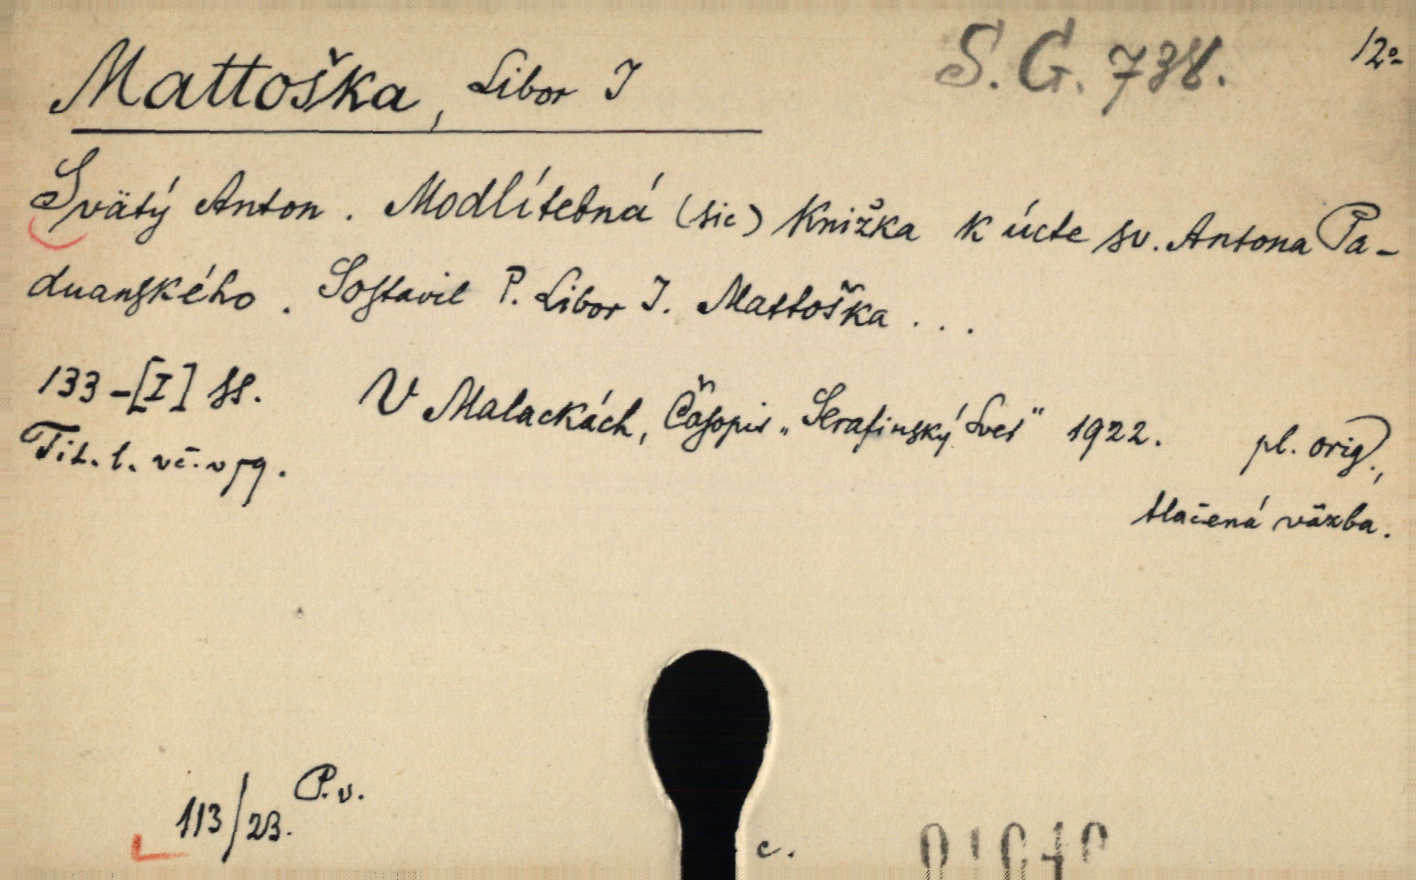 Mattoška, Libor J
S. G. 738.
12°
Svätý Anton. Modlítebná (sic) Knižka k úcte sv. Antona Pa-
duanského. Sostavil P. Libor J. Mattoška ...
133-[I] ss. V Malackách, Časopis „Serafinský Svet" 1922. pl. orig.,
Tit. l. vč. v pg.
tlačená väzba.
113/23. P. v.
c.